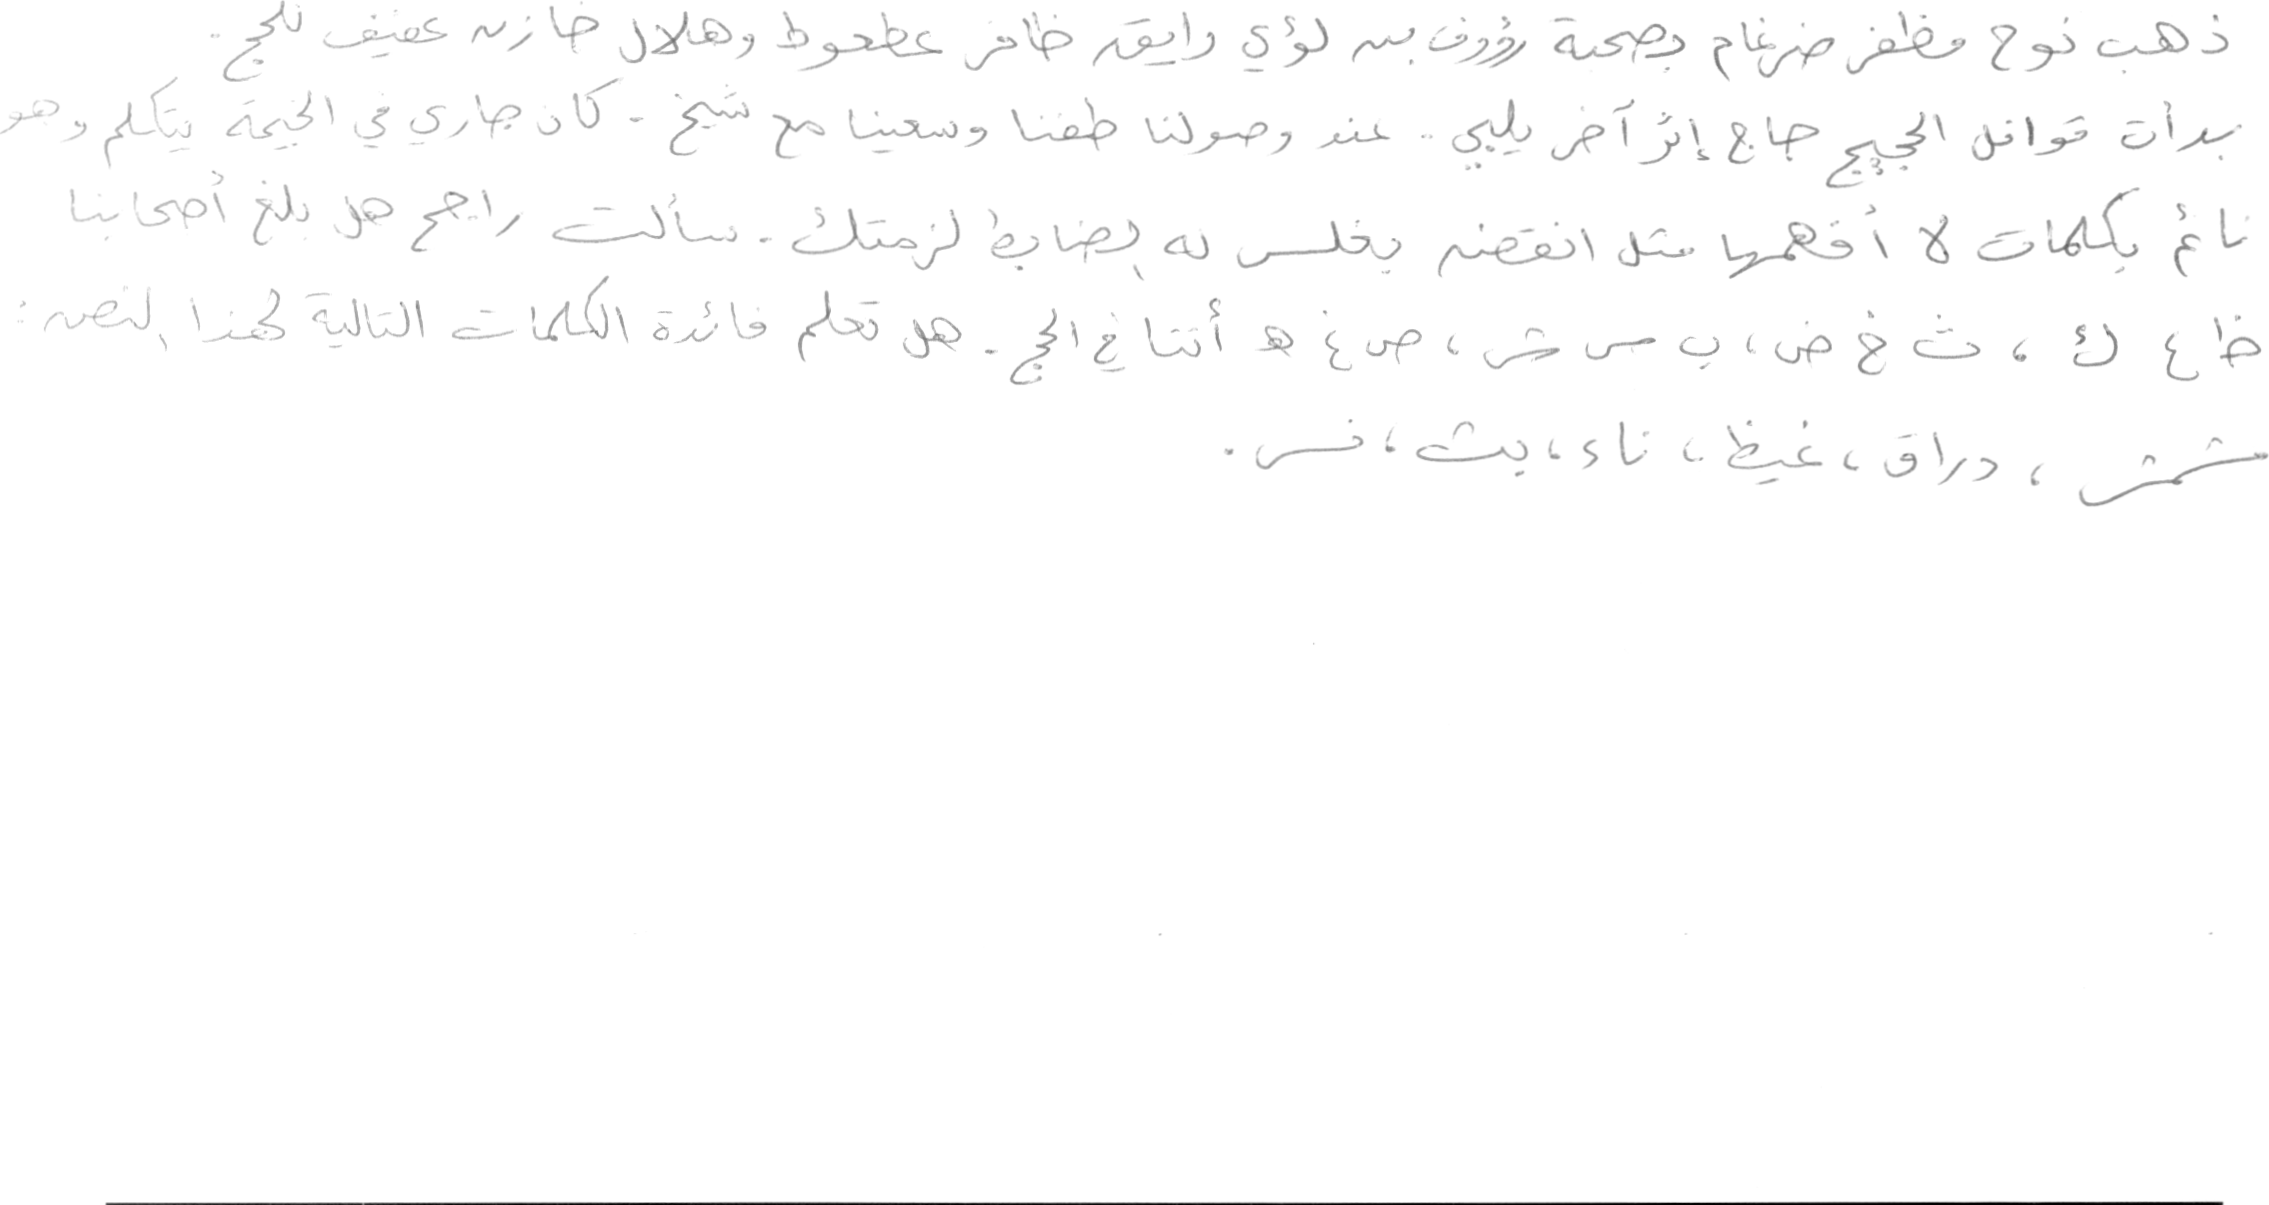 ذهب نوح مظفر ضرغام بصحبة رؤوف بن لؤي رايقه ظافر عطعوط وهلال خازن عفيف للحج.
بدأت قوافل الحجيج حاج إثر آخر يلبي. عند وصولنا طفنا وسعينا مع شيخ. كان جاري في الخيمة يتكلم وهو
نائم بكلمات لا أفهمها مثل انقضه بغلس له الضابط لزمتك. سألت راجح هل بلغ أصحابنا
ظ ع ك ، ث خ ض ، ب س ش ، ص غ ه أننا في الحج. هل تعلم فائدة الكلمات التالية لهذا النص:
مشمش ، دراق ، غيظ ، ناء ، بث ، نسر .